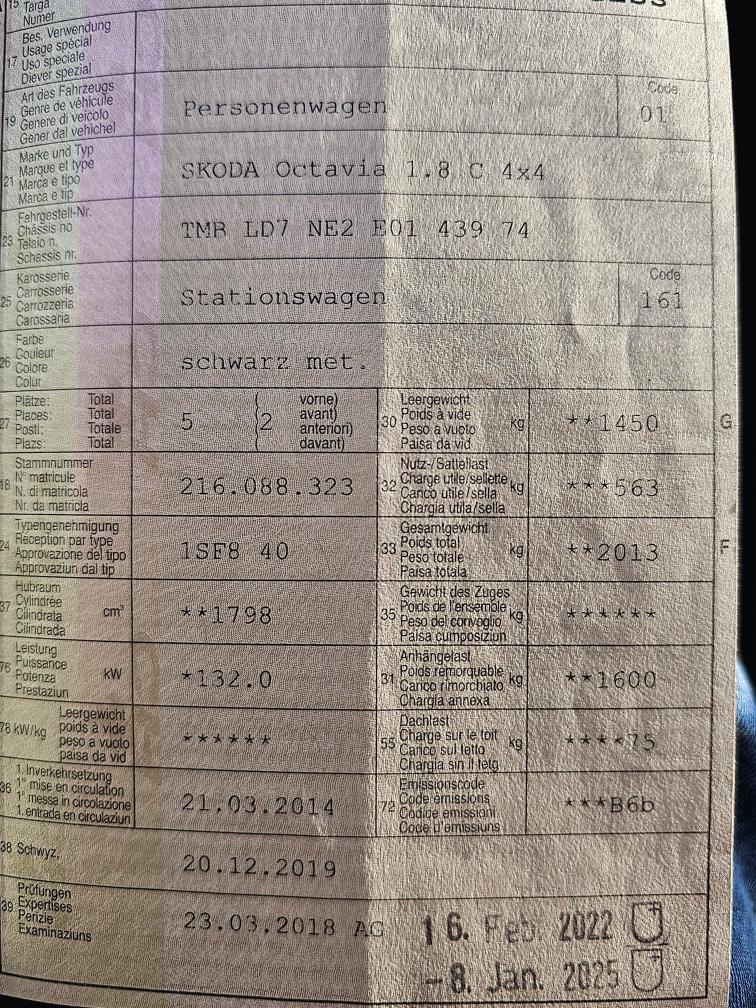 15 Targa
Numer
Bes. Verwendung
Usage spécial
17 Uso speciale
Diever spezial
Art des Fahrzeugs
Genre de véhicule
19 Genere di veicolo
Gener dal vehichel
Personenwagen
Code
01
Marke und Typ
Marque et type
21 Marca e tipo
Marca e tip
SKODA Octavia 1.8 C 4x4
Fahrgestell-Nr.
Châssis no
23 Telaio n.
Schassis nr.
TMB LD7 NE2 E01 439 74
Karosserie
Carrosserie
25 Carrozzeria
Carossaria
Stationswagen
Code
161
Farbe
26 Couleur
Colore
Colur
schwarz met.
Plätze: Total
27 Places: Total
Posti: Totale
Plazs: Total
5 (2 vorne)
avant)
anteriori)
davant)
Leergewicht
30 Poids à vide kg
Peso a vuoto
Paisa da vid
**1450
G
Stammnummer
18 N° matricule
N. di matricola
Nr. da matricla
216.088.323
Nutz-/Sattellast
32 Charge utile/sellette kg
Carico utile/sella
Chargia utila/sella
***563
Typengenehmigung
24 Réception par type
Approvazione del tipo
Approvaziun dal tip
1SF8 40
Gesamtgewicht
33 Poids total kg
Peso totale
Paisa totala
**2013
F
Hubraum
37 Cylindrée cm³
Cilindrata
Cilindrada
**1798
Gewicht des Zuges
35 Poids de l'ensemble kg
Peso del convoglio
Paisa cumposiziun
******
Leistung
76 Puissance kW
Potenza
Prestaziun
*132.0
Anhängelast
31 Poids remorquable kg
Carico rimorchiato
Chargia annexa
**1600
Leergewicht
78 kW/kg poids à vide
peso a vuoto
paisa da vid
******
Dachlast
55 Charge sur le toit kg
Carico sul tetto
Chargia sin il tetg
****75
1. Inverkehrsetzung
36 1re mise en circulation
1a messa in circolazione
1. entrada en circulaziun
21.03.2014
Emissionscode
72 Code émissions
Codice emissioni
Code d'emissiuns
***B6b
38 Schwyz,
20.12.2019
Prüfungen
39 Expertises
Perizie
Examinaziuns
23.03.2018 AG
16. Feb. 2022
-8. Jan. 2025